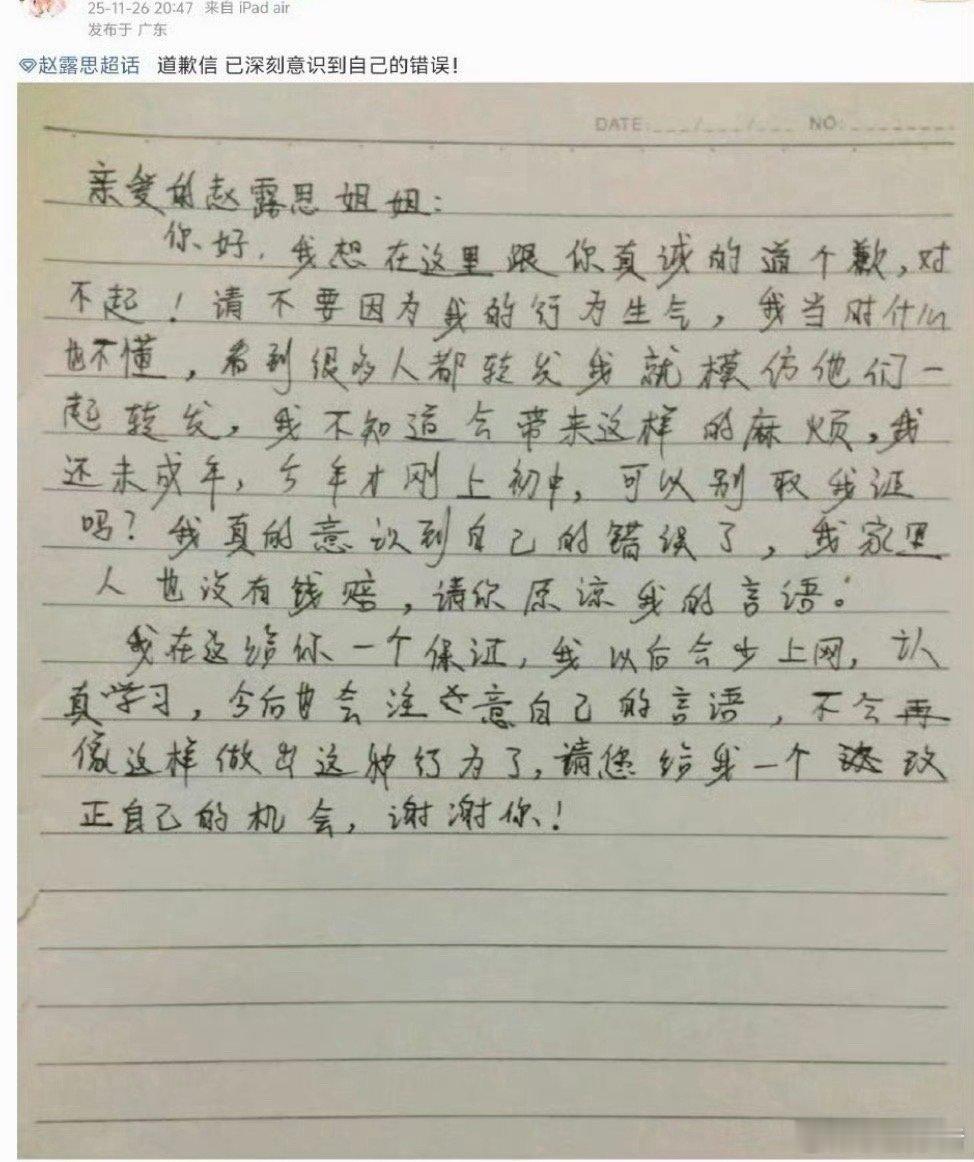 25-11-26 20:47 来自 iPad air
发布于 广东
赵露思超话 道歉信 已深刻意识到自己的错误！
DATE:___/___/___ NO:________
亲爱的赵露思姐姐：
你好，我想在这里跟你真诚的道个歉，对
不起！请不要因为我的行为生气，我当时什么
也不懂，看到很多人都转发我就模仿他们一
起转发，我不知道会带来这样的麻烦，我
还未成年，今年才刚上初中，可以别取我证
吗？我真的意识到自己的错误了，我家里
人也没有钱赔，请你原谅我的言语。
我在这给你一个保证，我以后会少上网，认
真学习，今后也会注意自己的言语，不会再
像这样做出这种行为了，请您给我一个改
正自己的机会，谢谢你！